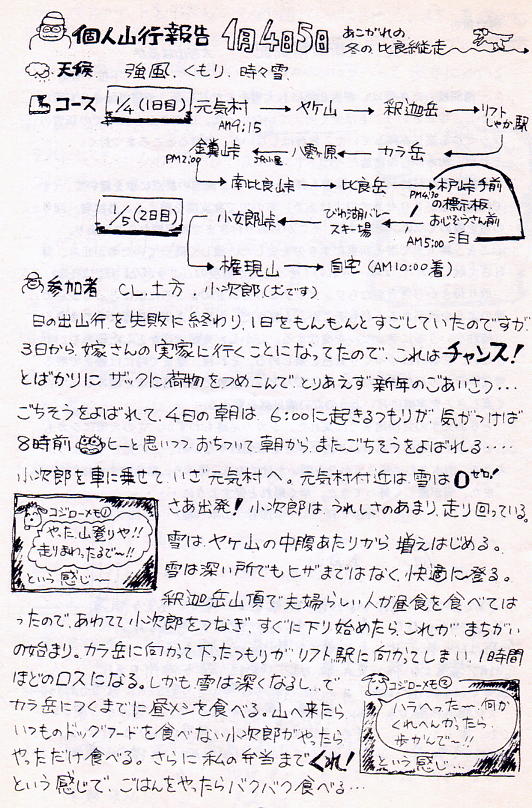 個人山行報告 1月4日5日 あこがれの、
冬の比良縦走
天候 強風、くもり、時々雪
コース 1/4(1日目) 元気村 → ヤケ山 → 釈迦岳 → リフト
しゃか駅
AM9:15
金糞峠 ← 八雲ヶ原 ← カラ岳
PM2:00
南比良峠 → 比良岳 → 木戸峠手前
PM4:30
の標示板
おじぞうさん前
AM5:00 泊
1/5(2日目) 小女郎峠 ← びわ湖バレー
スキー場
権現山 → 自宅(AM10:00着)
参加者 CL.土方、小次郎(犬です)
日の出山行を失敗に終わり、1日をもんもんとすごしていたのですが
3日から、嫁さんの実家に行くことになってたので、これはチャンス!
とばかりに ザックに荷物をつめこんで、とりあえず新年のごあいさつ・・・
ごちそうをよばれて、4日の朝は、6:00に起きるつもりが、気がつけば
8時前 ヒーと思いつつ、おちついて朝から、またごちそうをよばれる・・・・
小次郎を車に乗せて、いざ元気村へ。元気村付近は、雪は0ゼロ!
さあ出発! 小次郎は、うれしさのあまり、走り回っている。
コジローメモ①
やった、山登りや!!
走りまわったるで〜!!
という感じ〜
雪は、ヤケ山の中腹あたりから 増えはじめる。
雪は深い所でもヒザまではなく、快適に登る。
釈迦岳山頂で夫婦らしい人が昼食を食べては
ったので、あわてて小次郎をつなぎ、すぐに下り始めたら、これが まちがい
の始まり。カラ岳に向かって下ったつもりが リフト駅に向かってしまい、1時間
ほどのロスになる。しかも、雪は深くなるし、..で
カラ岳につくまでに昼メシを食べる。山へ来たら
いつものドッグフードを食べない小次郎が、やったら
やっただけ食べる。さらに私の弁当までくれ!
という感じで、ごはんをやったらバクバク食べる・・・
コジローメモ②
ハラへった〜、何か
くれへんかったら、
歩かんで〜!!
という感じ・・・